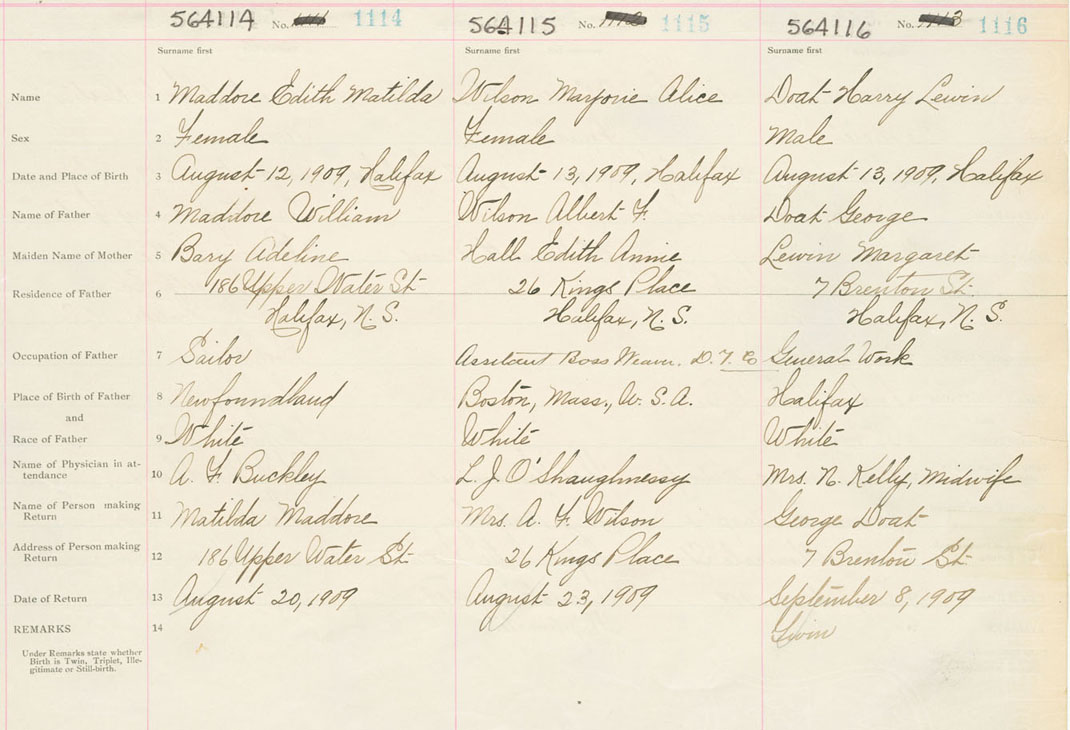 564114 No. 1114 564115 No. 1115 564116 No. 1116
Surname first Surname first Surname first
Name 1 Maddore Edith Matilda Wilson Marjorie Alice Doat Harry Lewin
Sex 2 Female Female Male
Date and Place of Birth 3 August 12, 1909, Halifax August 13, 1909, Halifax August 13, 1909, Halifax
Name of Father 4 Maddore William Wilson Albert F. Doat George
Maiden Name of Mother 5 Bary Adeline Hall Edith Annie Lewin Margaret
Residence of Father 6 186 Upper Water St 26 Kings Place 7 Brenton St.
Halifax, N. S. Halifax, N. S. Halifax, N. S.
Occupation of Father 7 Sailor Assitant Boss Weavr. D. F. Co General Work
Place of Birth of Father 8 Newfoundland Boston, Mass., U. S. A. Halifax
and
Race of Father 9 White White White
Name of Physician in at-
tendance 10 A. F. Buckley L. J O'Shaughnessy Mrs. N. Kelly, Midwife
Name of Person making
Return 11 Matilda Maddore Mrs. A. F. Wilson George Doat
Address of Person making
Return 12 186 Upper Water St 26 Kings Place 7 Brenton St
Date of Return 13 August 20, 1909 August 23, 1909 September 8, 1909
REMARKS 14
Under Remarks state whether
Birth is Twin, Triplet, Ille-
gitimate or Still-birth.